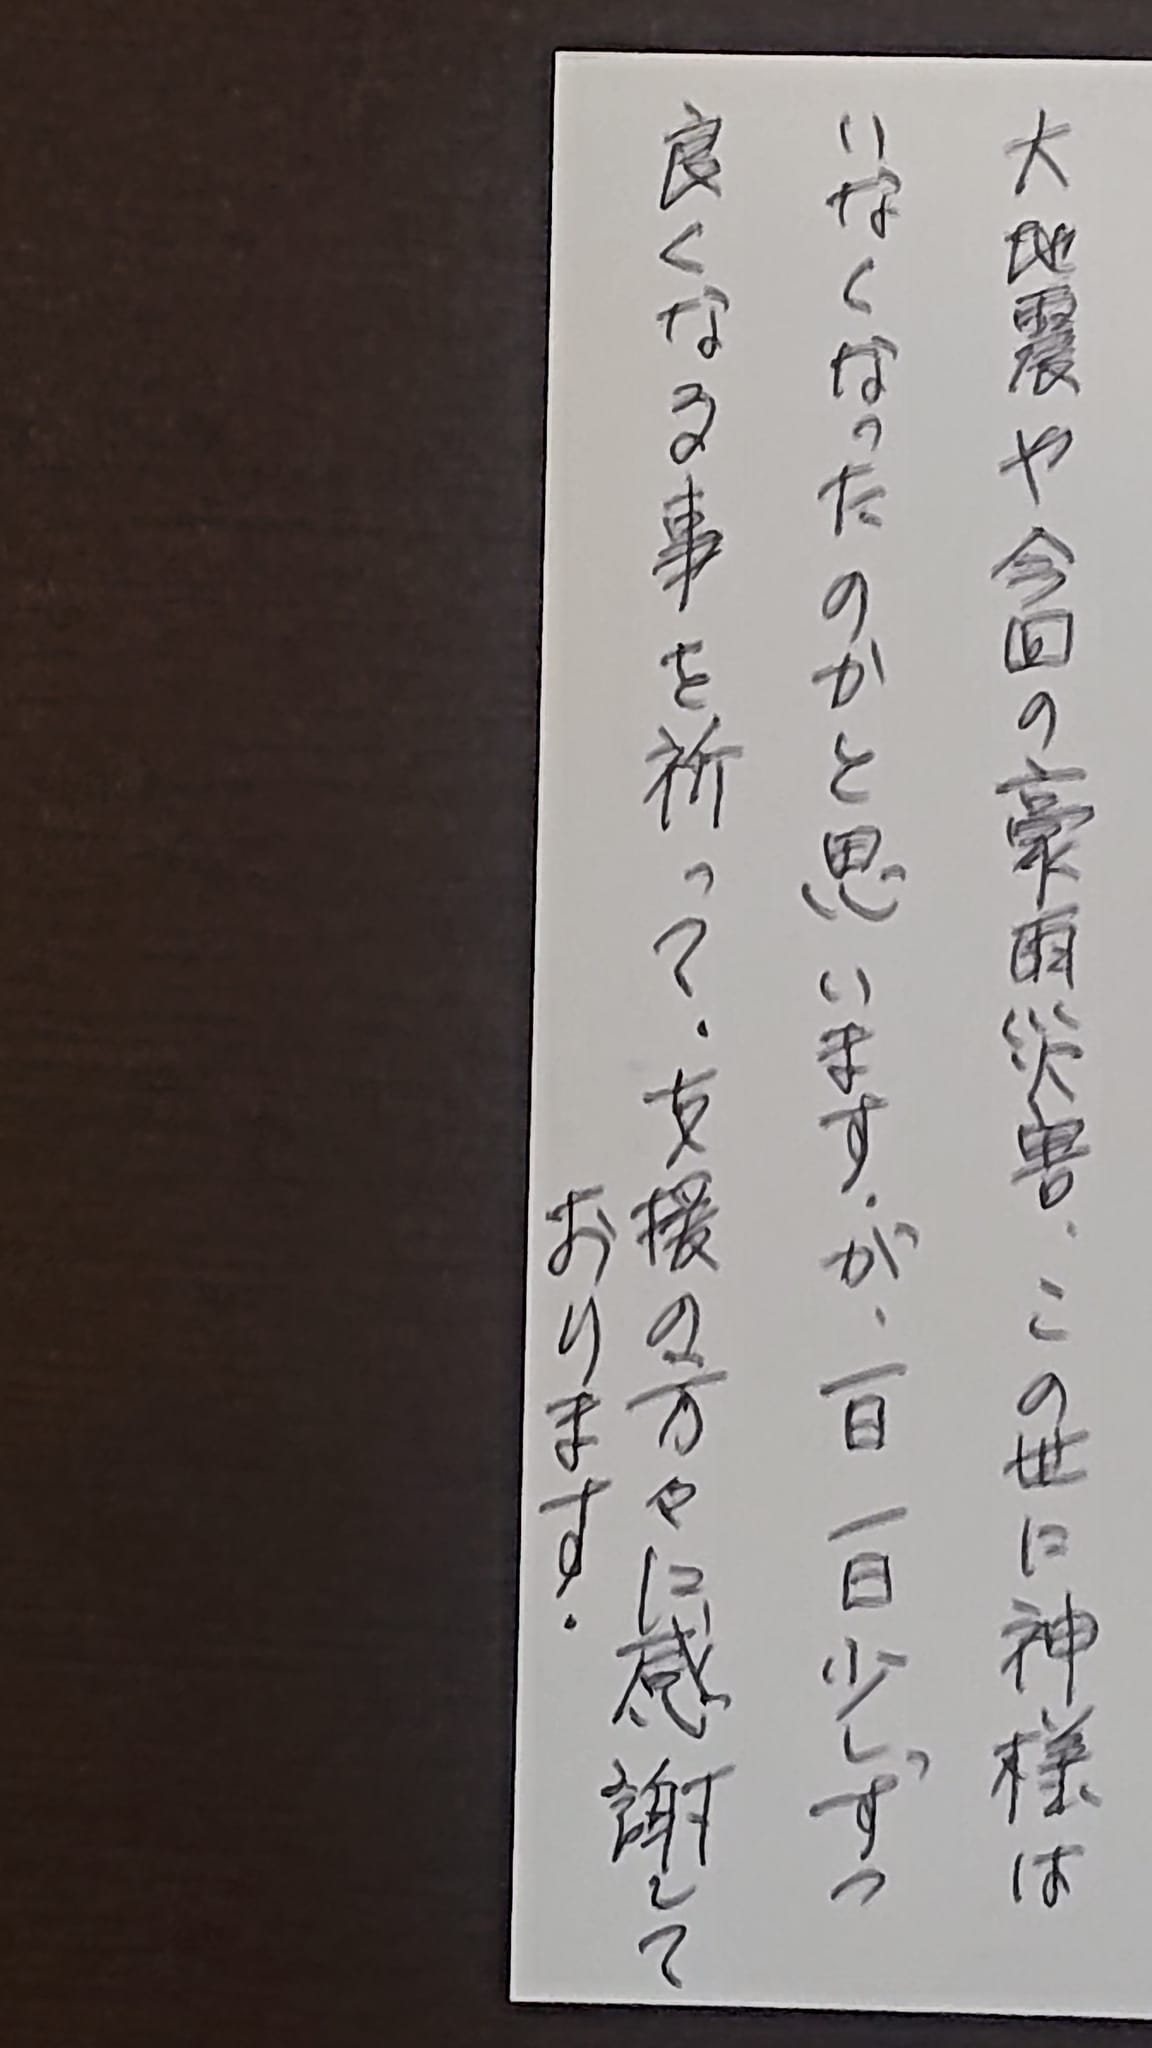 大地震や今回の豪雨災害、この世に神様は
いなくなったのかと思います。が、一日一日少しずつ
良くなる事を祈って、支援の方々に感謝して
おります。